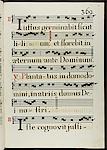 369
Iustus germinabit sicut
lilium. et florebit in
æternum ante Dominum.
℣. Plantatus in domo do
mini, in atriis domus De
Iste cognovit justi-